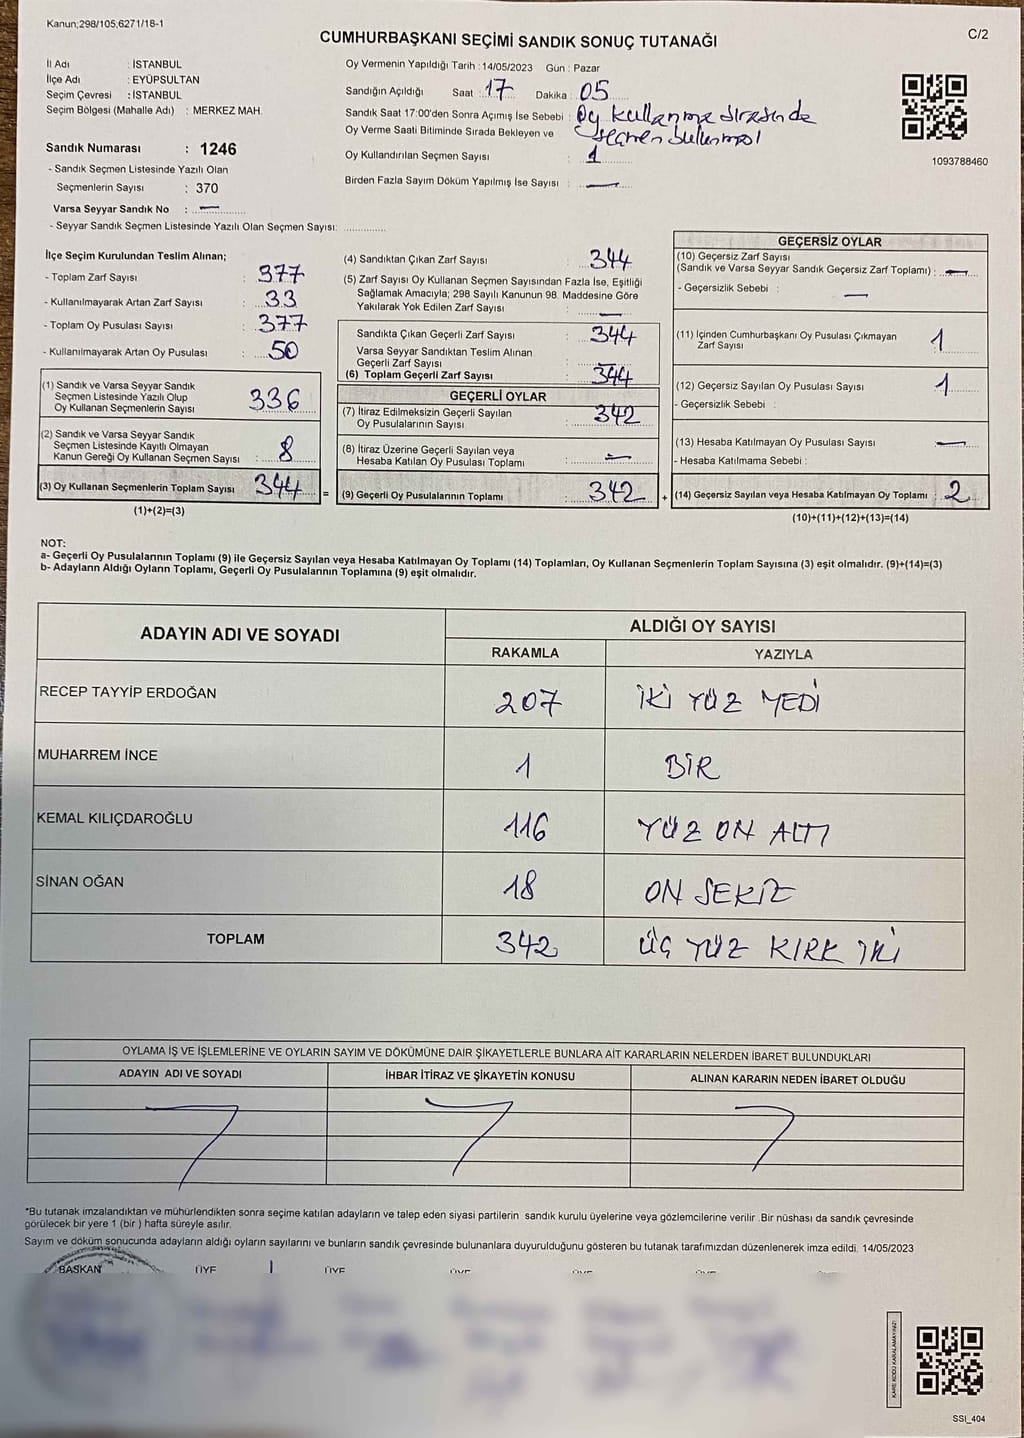 Kanun;298/105,6271/18-1
C/2
CUMHURBAŞKANI SEÇİMİ SANDIK SONUÇ TUTANAĞI
İl Adı : İSTANBUL
İlçe Adı : EYÜPSULTAN
Seçim Çevresi : İSTANBUL
Seçim Bölgesi (Mahalle Adı) : MERKEZ MAH.
Sandık Numarası : 1246
- Sandık Seçmen Listesinde Yazılı Olan
Seçmenlerin Sayısı : 370
Varsa Seyyar Sandık No : —
- Seyyar Sandık Seçmen Listesinde Yazılı Olan Seçmen Sayısı: ..............
Oy Vermenin Yapıldığı Tarih : 14/05/2023 Gün : Pazar
Sandığın Açıldığı Saat : 17 Dakika : 05
Sandık Saat 17:00'den Sonra Açımış İse Sebebi : Oy kullanma sırasında
Oy Verme Saati Bitiminde Sırada Bekleyen ve seçmen bulunması
Oy Kullandırılan Seçmen Sayısı : 1
Birden Fazla Sayım Döküm Yapılmış İse Sayısı : —
1093788460
İlçe Seçim Kurulundan Teslim Alınan;
- Toplam Zarf Sayısı : 377
- Kullanılmayarak Artan Zarf Sayısı : 33
- Toplam Oy Pusulası Sayısı : 377
- Kullanılmayarak Artan Oy Pusulası : 50
(1) Sandık ve Varsa Seyyar Sandık
Seçmen Listesinde Yazılı Olup
Oy Kullanan Seçmenlerin Sayısı 336
(2) Sandık ve Varsa Seyyar Sandık
Seçmen Listesinde Kayıtlı Olmayan
Kanun Gereği Oy Kullanan Seçmen Sayısı : 8
(3) Oy Kullanan Seçmenlerin Toplam Sayısı 344 =
(1)+(2)=(3)
(4) Sandıktan Çıkan Zarf Sayısı : 344
(5) Zarf Sayısı Oy Kullanan Seçmen Sayısından Fazla İse, Eşitliği
Sağlamak Amacıyla; 298 Sayılı Kanunun 98. Maddesine Göre
Yakılarak Yok Edilen Zarf Sayısı : —
Sandıkta Çıkan Geçerli Zarf Sayısı : 344
Varsa Seyyar Sandıktan Teslim Alınan
Geçerli Zarf Sayısı :
(6) Toplam Geçerli Zarf Sayısı : 344
GEÇERLİ OYLAR
(7) İtiraz Edilmeksizin Geçerli Sayılan
Oy Pusulalarının Sayısı : 342
(8) İtiraz Üzerine Geçerli Sayılan veya
Hesaba Katılan Oy Pusulası Toplamı : —
(9) Geçerli Oy Pusulalarının Toplamı : 342 +
GEÇERSİZ OYLAR
(10) Geçersiz Zarf Sayısı
(Sandık ve Varsa Seyyar Sandık Geçersiz Zarf Toplamı) : —
- Geçersizlik Sebebi : —
(11) İçinden Cumhurbaşkanı Oy Pusulası Çıkmayan
Zarf Sayısı : 1
(12) Geçersiz Sayılan Oy Pusulası Sayısı : 1
- Geçersizlik Sebebi :
(13) Hesaba Katılmayan Oy Pusulası Sayısı : —
- Hesaba Katılmama Sebebi :
(14) Geçersiz Sayılan veya Hesaba Katılmayan Oy Toplamı : 2
(10)+(11)+(12)+(13)=(14)
NOT:
a- Geçerli Oy Pusulalarının Toplamı (9) ile Geçersiz Sayılan veya Hesaba Katılmayan Oy Toplamı (14) Toplamları, Oy Kullanan Seçmenlerin Toplam Sayısına (3) eşit olmalıdır. (9)+(14)=(3)
b- Adayların Aldığı Oyların Toplamı, Geçerli Oy Pusulalarının Toplamına (9) eşit olmalıdır.
ADAYIN ADI VE SOYADI ALDIĞI OY SAYISI
RAKAMLA YAZIYLA
RECEP TAYYİP ERDOĞAN 207 İKİ YÜZ YEDİ
MUHARREM İNCE 1 BİR
KEMAL KILIÇDAROĞLU 116 YÜZ ON ALTI
SİNAN OĞAN 18 ON SEKİZ
TOPLAM 342 ÜÇ YÜZ KIRK İKİ
OYLAMA İŞ VE İŞLEMLERİNE VE OYLARIN SAYIM VE DÖKÜMÜNE DAİR ŞİKAYETLERLE BUNLARA AİT KARARLARIN NELERDEN İBARET BULUNDUKLARI
ADAYIN ADI VE SOYADI İHBAR İTİRAZ VE ŞİKAYETİN KONUSU ALINAN KARARIN NEDEN İBARET OLDUĞU
*Bu tutanak imzalandıktan ve mühürlendikten sonra seçime katılan adayların ve talep eden siyasi partilerin sandık kurulu üyelerine veya gözlemcilerine verilir .Bir nüshası da sandık çevresinde
görülecek bir yere 1 (bir ) hafta süreyle asılır.
Sayım ve döküm sonucunda adayların aldığı oyların sayılarını ve bunların sandık çevresinde bulunanlara duyurulduğunu gösteren bu tutanak tarafımızdan düzenlenerek imza edildi. 14/05/2023
BAŞKAN ÜYE ÜYE ÜYE ÜYE ÜYE
KARE KODU KARALAMAYINIZ!
SSI_404